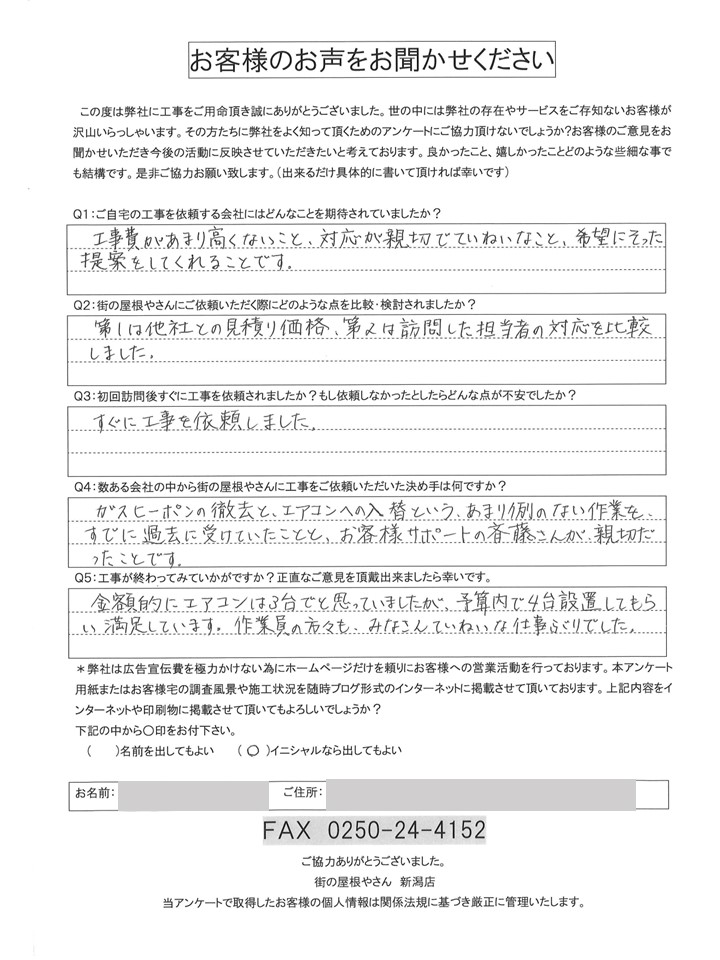 お客様のお声をお聞かせください
この度は弊社に工事をご用命頂き誠にありがとうございました。世の中には弊社の存在やサービスをご存知ないお客様が
沢山いらっしゃいます。その方たちに弊社をよく知って頂くためのアンケートにご協力頂けないでしょうか?お客様のご意見をお
聞かせいただき今後の活動に反映させていただきたいと考えております。良かったこと、嬉しかったことどのような些細な事で
も結構です。是非ご協力お願い致します。(出来るだけ具体的に書いて頂ければ幸いです)
Q1:ご自宅の工事を依頼する会社にはどんなことを期待されていましたか?
工事費があまり高くないこと、対応が親切でていねいなこと、希望にそった
提案をしてくれることです。
Q2:街の屋根やさんにご依頼いただく際にどのような点を比較・検討されましたか?
第1は他社との見積り価格、第2は訪問した担当者の対応を比較
しました。
Q3:初回訪問後すぐに工事を依頼されましたか?もし依頼しなかったとしたらどんな点が不安でしたか?
すぐに工事を依頼しました。
Q4:数ある会社の中から街の屋根やさんに工事をご依頼いただいた決め手は何ですか?
ガスヒーポンの撤去と、エアコンへの入替という、あまり例のない作業を、
すでに過去に受けていたことと、お客様サポートの斉藤さんが、親切だ
ったことです。
Q5:工事が終わってみていかがですか?正直なご意見を頂戴出来ましたら幸いです。
金額的にエアコンは3台でと思っていましたが、予算内で4台設置してもら
い満足しています。作業員の方々も、みなさんていねいな仕事ぶりでした。
*弊社は広告宣伝費を極力かけない為にホームページだけを頼りにお客様への営業活動を行っております。本アンケート
用紙またはお客様宅の調査風景や施工状況を随時ブログ形式のインターネットに掲載させて頂いております。上記内容をイ
ンターネットや印刷物に掲載させて頂いてもよろしいでしょうか?
下記の中から〇印をお付下さい。
( )名前を出してもよい (〇)イニシャルなら出してもよい
お名前: ご住所:
FAX 0250-24-4152
ご協力ありがとうございました。
街の屋根やさん 新潟店
当アンケートで取得したお客様の個人情報は関係法規に基づき厳正に管理いたします。